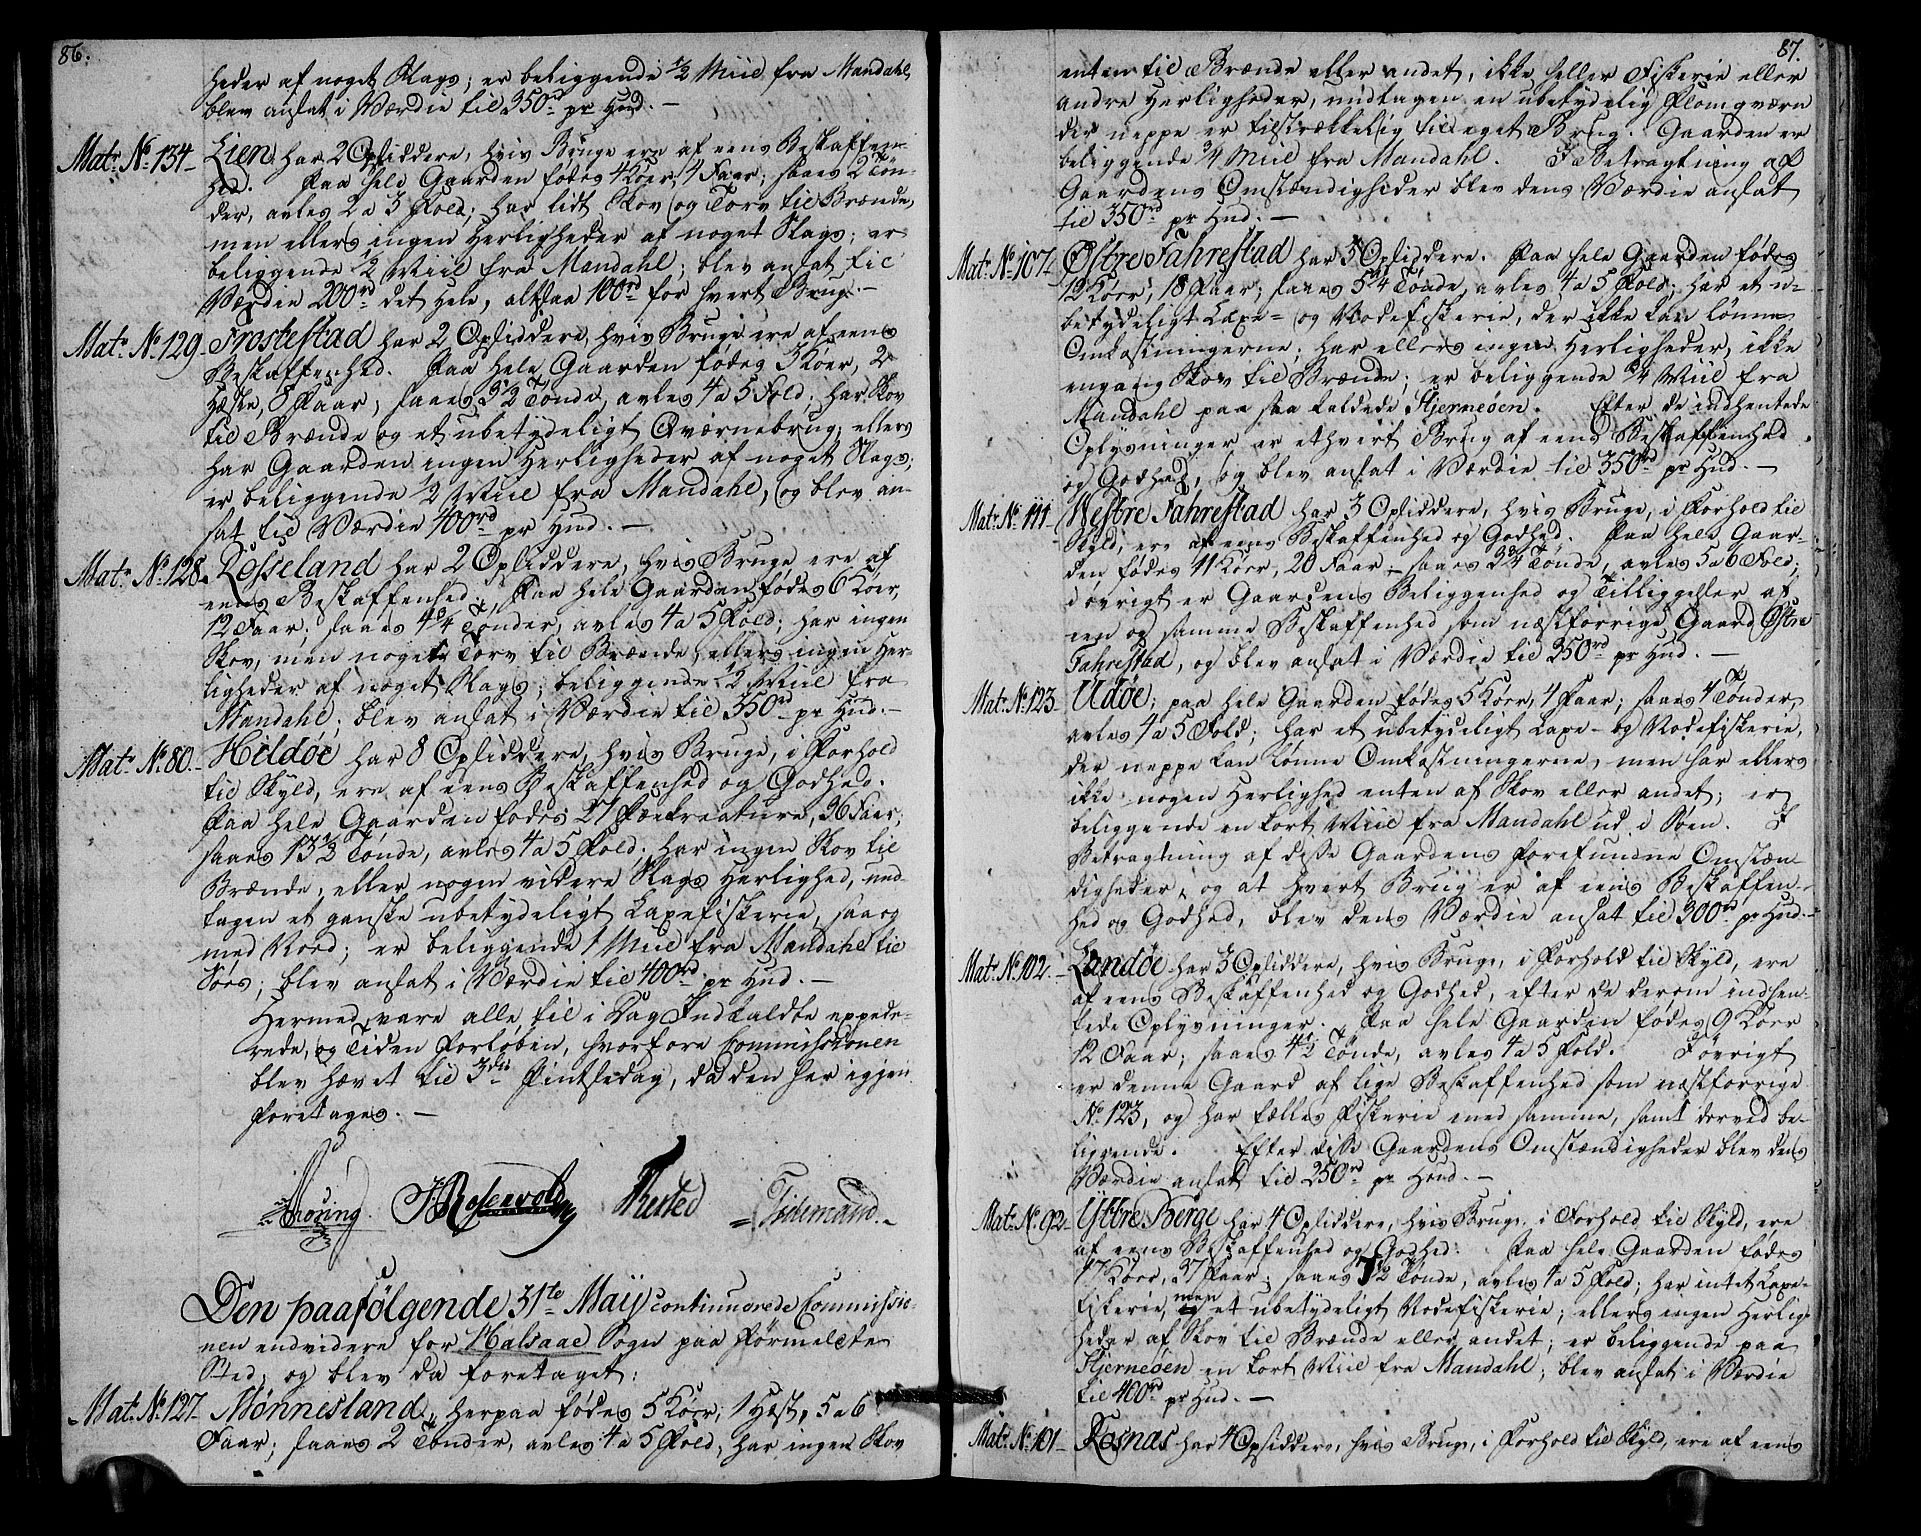 86.
heder af noget Slags; er beliggende 1/2 Miil fra Mandahl,
blev ansat i Værdie til 350rd pr Hud. —
Matr. No. 134 — Lien har 2 Opsiddere, hvis Bruge ere af eens Beskaffen-
hed. Paa hele Gaarden fødes 4 Køer, 4 Faar; saaes 2 Tøn-
der, avles 2 a 3 Fold; har lidt Skov og Torv til Brænde,
men ellers ingen Herligheder af noget Slags; er
beliggende 1/2 Miil fra Mandahl; blev ansat til
Værdie 200rd det hele, altsaa 100rd for hvert Brug. —
Matr. No. 129 — Frostestad har 2 Opsiddere, hvis Bruge ere af eens
Beskaffenhed. Paa hele Gaarden fødes 3 Køer, 2
Hæste, 8 Faar; saaes 3 1/2 Tønde, avles 4 a 5 Fold; har Skov
til Brænde og et ubetydeligt Qværnebrug; ellers
har Gaarden ingen Herligheder af noget Slags;
er beliggende 1/2 Miil fra Mandahl, og blev an-
sat til Værdie 400rd pr Hud. —
Matr. No. 128. Rosseland har 2 Opsiddere, hvis Bruge ere af
eens Beskaffenhed. Paa hele Gaarden fødes 6 Køer,
12 Faar; saaes 4 3/4 Tønder, avles 4 a 5 Fold; har ingen
Skov, men noget Torv til Brænde, ellers ingen Her-
ligheder af noget Slags; beliggende 1/2 Miil fra
Mandahl; blev ansat i Værdie til 350rd pr Hud. —
Matr. No. 80. — Hildøe har 8 Opsiddere, hvis Bruge, i Forhold
til Skyld, ere af eens Beskaffenhed og Godhed.
Paa hele Gaarden fødes 27 Fækreature, 36 Faar;
saaes 13 1/2 Tønde, avles 4 a 5 Fold; har ingen Skov til
Brænde, eller nogen videre Slags Herlighed, und-
tagen et ganske ubetydeligt Laxefiskerie, saa og
med Noed; er beliggende 1 Miil fra Mandahl til
Søes; blev ansat i Værdie til 400rd pr Hud. —
Hermed vare alle til i Dag Indkaldte eppede-
rede, og Tiden forløben, hvorfore Commissionen
blev hævet til 3die Pintsedag, da den her igjen
foretages. —
Rosenvold Tidemand. —
Den paafølgende 31te Maij continuerede Commissio-
nen endvidere for Halsaae Sogn paa formeldte
Sted, og blev da foretaget:
Matr. No. 127 — Mønnesland, herpaa fødes 5 Køer, 1 Hæst, 5 a 6
Faar; saaes 2 Tønder, avles 4 a 5 Fold, har ingen Skov
87.
enten til Brænde eller andet, ikke heller Fiskerie eller
andre Herligheder, undtagen en ubetydelig Flomqværn
der neppe er tilstrækkelig til eget Brug. Gaarden er
beliggende 3/4 Miil fra Mandahl. I Betragtning af
Gaardens Omstændigheder blev dens Værdie ansat
til 350rd pr Hud. —
Matr. No. 107 — Østre Fahrestad har 5 Opsiddere. Paa hele Gaarden fødes
12 Køer, 18 Faar; saaes 5 3/4 Tønde, avles 4 a 5 Fold; har et u-
betydeligt Laxe- og Nodefiskerie, der ikke kan lønne
Omkostningerne; har ellers ingen Herligheder, ikke
engang Skov til Brænde; er beliggende 3/4 Miil fra
Mandahl paa saa kaldede Skjernøen. Efter de indhentede
Oplysninger er ethvert Brug af eens Beskaffenhed
og Godhed, og blev ansat i Værdie til 350rd pr Hud. —
Matr. No. 111 — Westre Fahrestad har 3 Opsiddere, hvis Bruge, i Forhold til
Skyld, ere af eens Beskaffenhed og Godhed. Paa hele Gaar-
den fødes 11 Køer, 20 Faar, saaes 3 3/4 Tønde, avles 5 a 6 Fold;
i øvrigt er Gaardens Beliggenhed og Tilliggelser af
een og samme Beskaffenhed som næstforrige Gaard Østre
Fahrestad, og blev ansat i Værdie til 350rd pr Hud. —
Matr. No. 123 — Udøe; paa hele Gaarden fødes 5 Køer, 4 Faar; saaes 4 Tønder,
avles 4 a 5 Fold; har et ubetydeligt Laxe- og Nodefiskerie,
der neppe kan lønne Omkostningerne, men har ellers
ikke nogen Herlighed enten af Skov eller andet; er
beliggende en kort Miil fra Mandahl ud i Søen. I
Betragtning af disse Gaardens forefundne Omstæn-
digheder, og at hvert Brug er af eens Beskaffen-
hed og Godhed, blev dens Værdie ansat til 300rd pr Hud. —
Matr. No. 102. — Landøe har 3 Opsiddere, hvis Bruge, i Forhold til Skyld, ere
af eens Beskaffenhed og Godhed, efter de derom indhen-
tede Oplysninger. Paa hele Gaarden fødes 9 Køer
12 Faar; saaes 4 1/2 Tønde, avles 4 a 5 Fold. I øvrigt
er denne Gaard af lige Beskaffenhed som næstforrige
No. 123, og har fælles Fiskerie med samme, samt derved be-
liggende. Efter disse Gaardens Omstændigheder blev dens
Værdie ansat til 250rd pr Hud. —
Matr. No. 92 — Ystre Berge har 4 Opsiddere, hvis Bruge, i Forhold til Skyld, ere
af eens Beskaffenhed og Godhed. Paa hele Gaarden fødes
17 Køer, 37 Faar; saaes 7 1/2 Tønde, avles 4 a 5 Fold; har intet Laxe-
fiskerie, men et ubetydeligt Nodefiskerie; ellers ingen Herlig-
heder af Skov til Brænde eller andet; er beliggende paa
Skjernøen en kort Miil fra Mandahl; blev ansat i Værdie
til 400rd pr Hud. —
Matr. No. 101 — Rosnas har 4 Opsiddere, hvis Bruge, i Forhold til Skyld, ere af eens